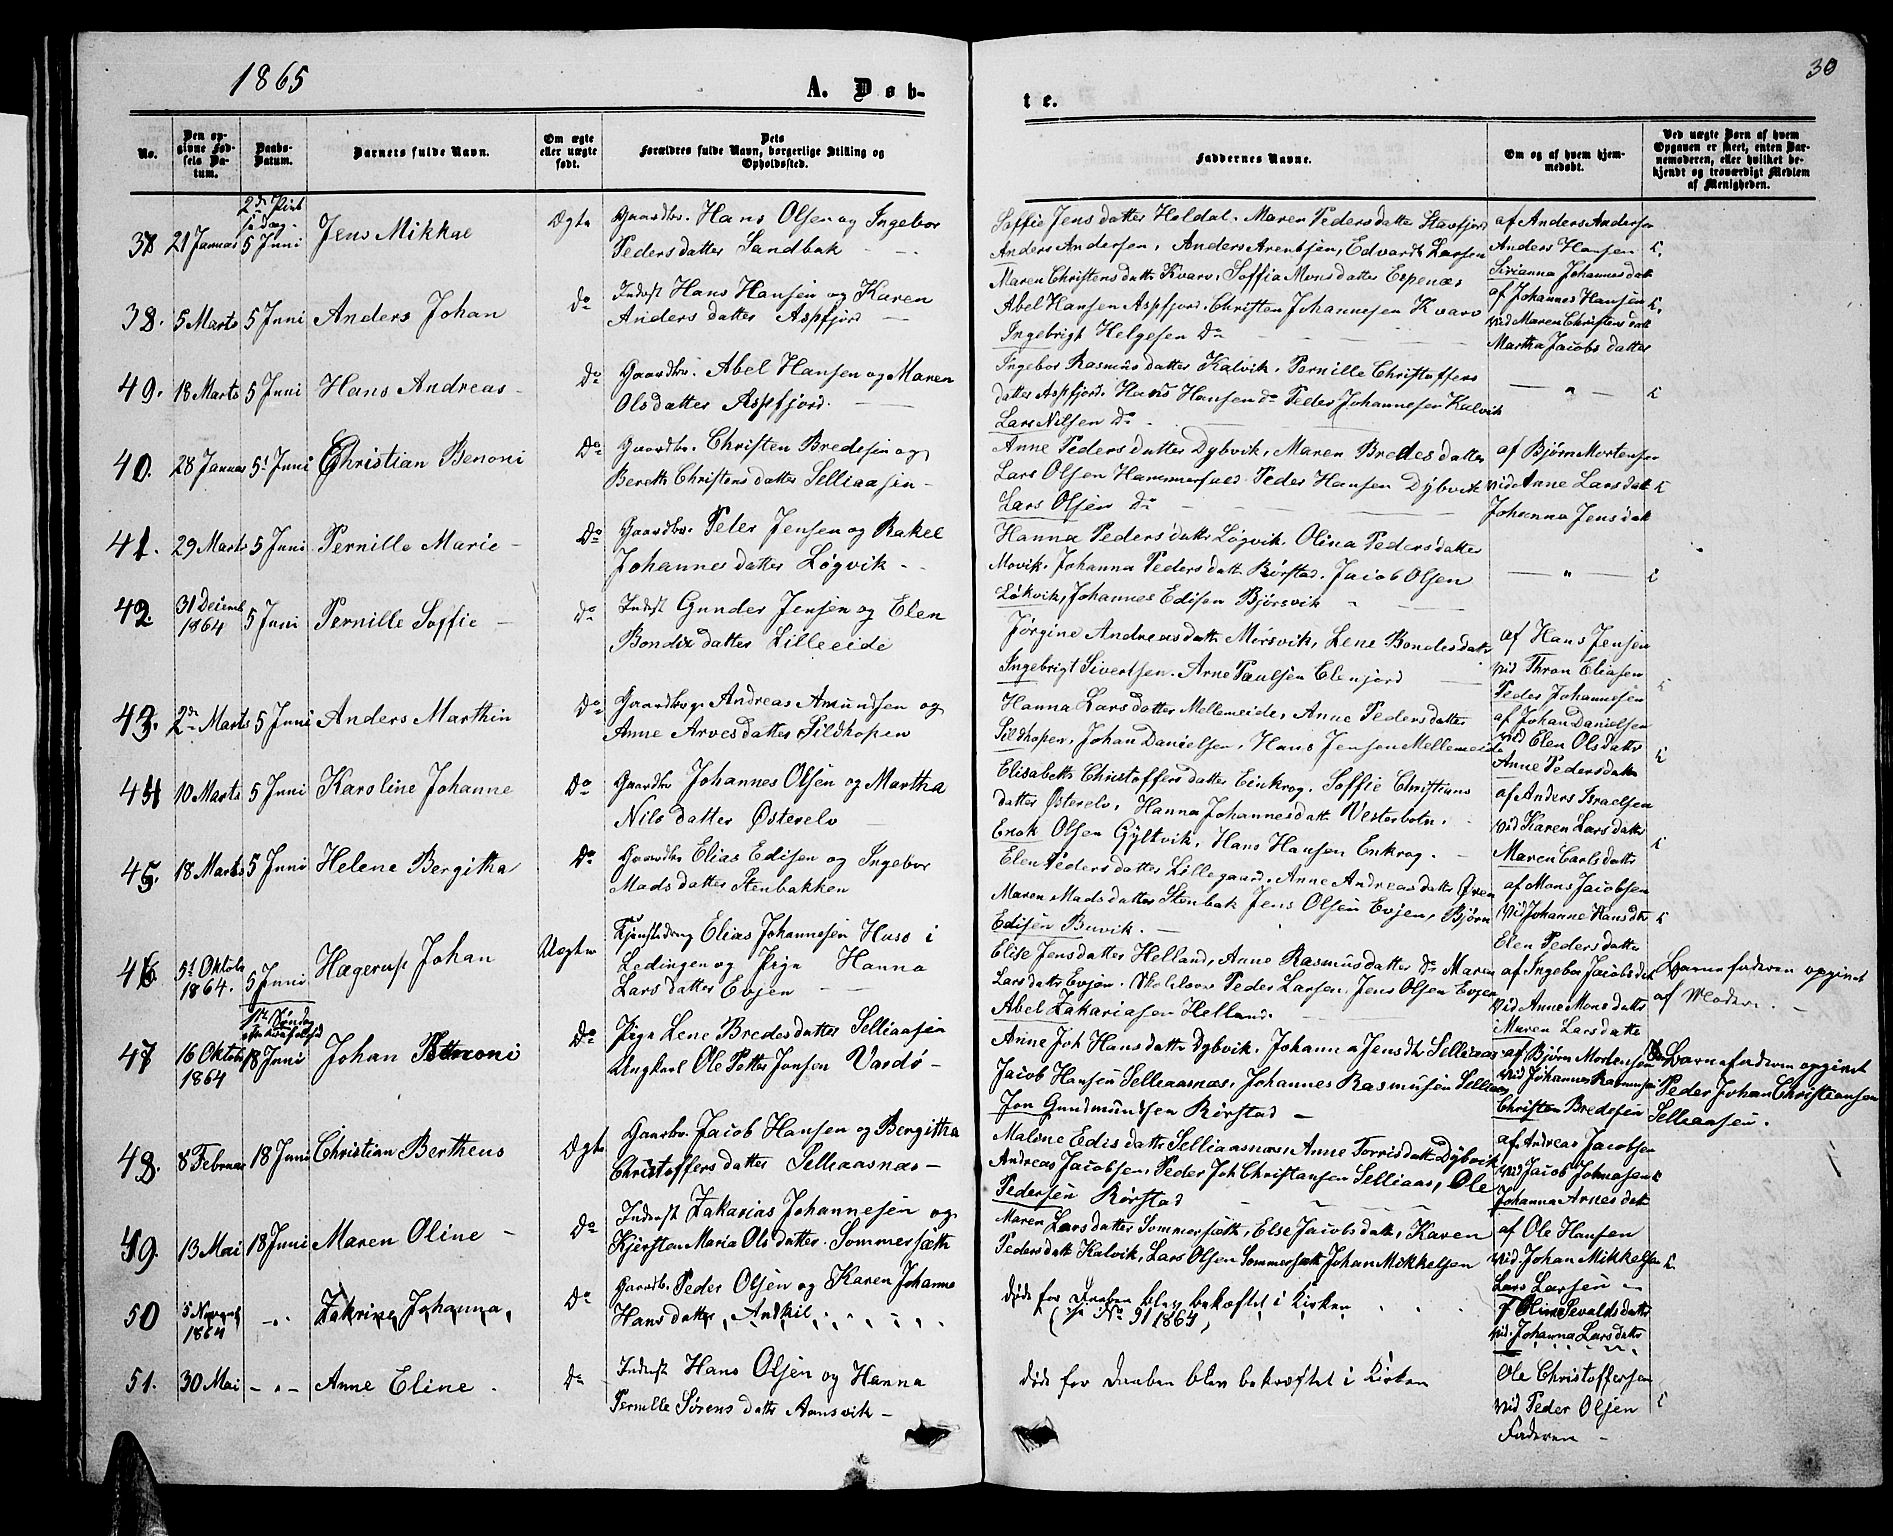 1865
A. Døb-
te.
30
No.
Den opgivne Fødsels Datum.
Daabs-Datum.
Barnets fulde Navn.
Om ægte eller uægte født.
Dets Forældres fulde Navn, borgerlige Stilling og Opholdssted.
Faddernes Navne.
Om og af hvem hjemmedøbt.
Ved uægte Børn af hvem Opgaven er skeet, enten Barnemoderen, eller hvilket bekjendt og troværdigt Medlem af Menigheden.
37 21 Januar 5 Juni Jens Mikkal Ægte Gaardbr. Hans Olsen og Ingebor
Pedersdatter Sandbak
Soffie Jensdatter Holdal. Maren Pedersdatter Stavfjord
Anders Andersen, Anders Arentsen, Edvardt Larsen
af Anders Andersen
Anders Hansen
Sirianna Johannesdatt
38. 5 Marts 5 Juni Anders Johan Do Inderst Hans Hansen og Karen
Andersdatter Aspfjord
Maren Christensdatt Kvarv, Soffia Monsdatter Espenæs
Abel Hansen Aspfjord. Christen Johannesen Kvarv
Ingebrigt Helgesen Do
af Johannes Hansen
vid Maren Christensdatt
Martha Jacobsdatter
49. 18 Marts 5 Juni Hans Andreas Do Gaardbr. Abel Hansen og Maren
Olsdatter Aspfjord.
Ingebor Rasmusdatter Kalvik. Pernille Christoffers
datter Aspfjord. Hans Hansen do Peder Johannesen Kalvik
Lars Nilsen Do
40. 28 Januar 5 Juni Christian Benoni Do Gaardbr. Christen Bredesen og
Berette Christensdatter Selliaasen
Anne Pedersdatter Dybvik, Maren Bredesdatter
Lars Olsen Hammerfald. Peder Hansen Dybvik
Lars Olsen Do
af Bjørn Mortensen
vid Anne Larsdatt
Johanna Jensdatt
41. 29 Marts 5 Juni Pernille Marie Do Gaardbr. Peter Jensen og Rakel
Johannesdatter Løgvik
Hanna Pedersdatt Løgvik. Olina Pedersdatter
Movik. Johanna Pedersdatt Rørstad. Jacob Olsen
Løkvik, Johannes Edisen Bjørsvik
42. 31 Decemb 1864 5 Juni Pernille Soffie Do Inderst Gunder Jensen og Elen
Bondixdatter Lilleeide
Jørgine Andreasdatt Mørsvik, Lene Bondesdatt
Ingebrigt Sivertsen. Arne Paulsen Elenjord
af Hans Jensen
vid Thron Eliasen
Peder Johannesen
43. 2den Marts 5 Juni Anders Marthin Do Andreas Amundsen og
Anne Arvesdatter Sildhopen
Hanna Larsdatter Mellemeide, Anne Pedersdatter
Sildhopen, Johan Danielsen, Hans Jensen Mellemeide
af Johan Danielsen
vid Elen Olsdatter
Anne Pedersdatt
44 10 Marts 5 Juni Karoline Johanne Do Gaardbr Johannes Olsen og Martha
Nilsdatter Østerelv
Elisabeth Christoffersdatter Einkrog, Soffie Christians
datter Østerelv, Hanna Johannesdatt Vesterbotn.
Enok Olsen Gyltvik, Hans Hansen Enkrog.
af Anders Israelsen
vid Karen Larsdatter
Maren Carlsdatter
45. 18 Marts 5 Juni Helene Bergitha Do Gaardbr Elias Edisen og Ingebor
Madsdatter Stenbakken
Elen Pedersdatter Lillegaard, Anne Andreasdatter Øren
Maren Madsdatter Stenbak Jens Olsen Evjen, Bjørn
Edisen Buvik.
af Mons Jacobsen
vid Johanne Hansdtr
Elen Pedersdatter
46 5t Oktober 1864. 5 Juni Hægerup Johan Uægte Elias Johannesen Huso i
Lødingen og Pige Hanna
Larsdatter Evjen
Elise Jensdatter Helland, Anne Rasmusdatter do Maren
Larsdatter Evjen. Peder Larsen, Jens Olsen Evjen
Abel Zakariasen Helland.
af Ingebor Jacobsdatt
vid Anne Monsdatter
Maren Larsdatte
Barnefaderen opgivet
af Moderen.
47 16 Oktob 1864 18 Juni Johan Benoni Do Pige Lene Bredesdatter Selliaasen
Ungkarl Ole Petter Jonsen Vardø
Anne Joh Hansdatter Dybvik, Johanna Jensdtr Selliaas
Jacob Hansen Selliaasnæs, Johannes Rasmusen Selliaas
Jon Gundmundsen Rørstad
af Bjørn Mortensen
vid Johannes Rasmusen
Christen Bredesen
Barnefaderen opgivet
Peder Johan Christiansen
Selliaasen.
48. 8 Februar 18 Juni Christian Bertheus Ægte Gaarbr. Jacob Hansen og Bergitha
Christoffersdatter Selliaasnæs
Malene Edisdatter Selliaasnæs, Anne Torrisdatt Dybvik
Andreas Jacobsen, Peder Joh Christiansen Selliaas, Ole
Pedersen Rørstad
af Andreas Jacobsen
vid Jacob Johnasen
Johanna Arnesdatt
49. 13 Mai 18 Juni Maren Oline Do Inderst Zakarias Johannesen og
Kjersten Maria Olsdatter Sommersæth
Maren Larsdatter Sommersæth, Else Jacobsdatt, Karen
Pedersdatt Kalvik, Lars Olsen Sommersæth Johan Mikkelsen
af Ole Hansen
vid Johan Mikkelsen
Lars Larsen
50 1864 Zakrine Johanna Do Gaardb. Peder Olsen og Karen Johanne
Hansdatter
døde før Daaben blev bekæftet i Kirken
No 91 1864
Oline Sevaldsdatter
vid. Johanna Larsdatter
51. 30 Mai Anne Eline Do Inderst Hans Olsen og Hanna
Pernille Sørensdatter Aansvik
døde før Daaben blev bekræftet i Kirken
Ole Christoffersen
vid Peder Olsen
Faderen